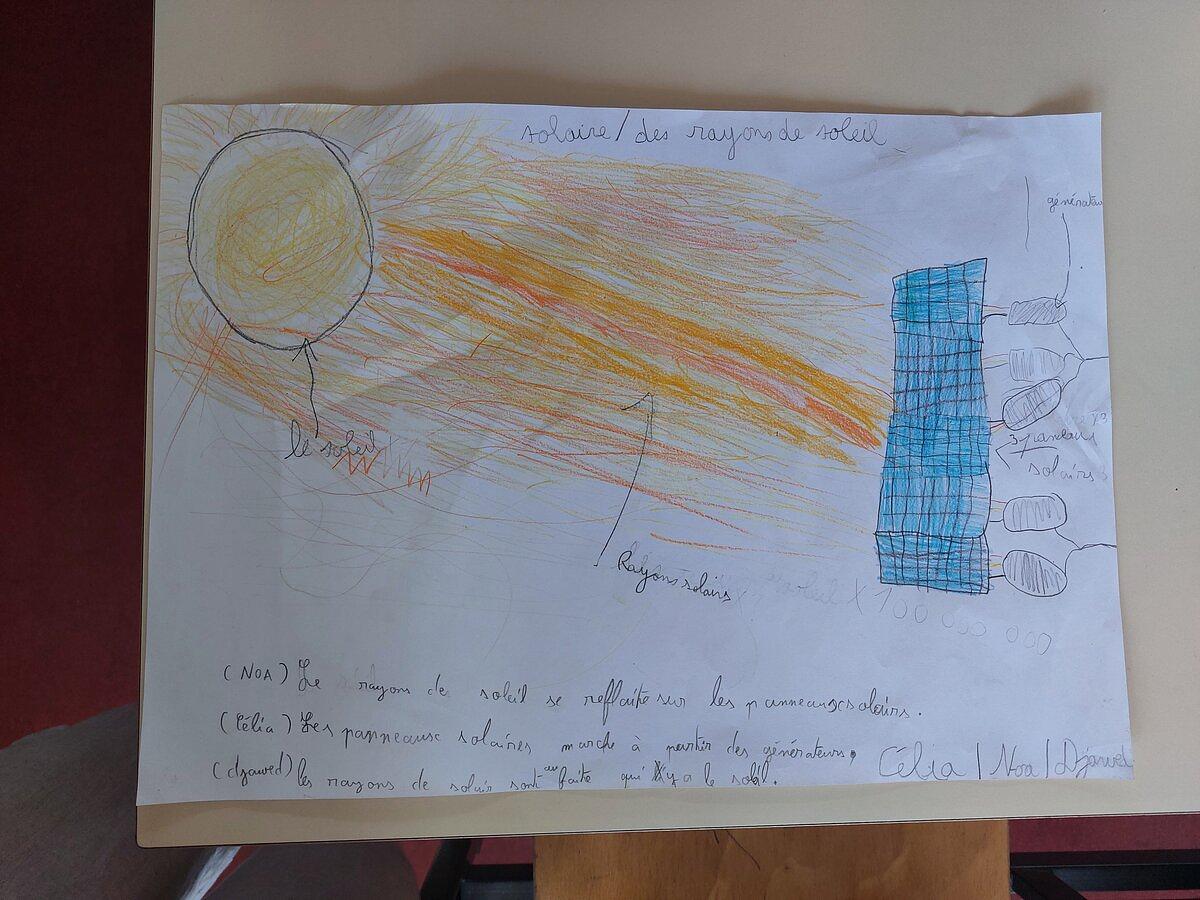 solaire / des rayons de soleil
générateur
le soleil
3 paneaux
solairs
Rayons solairs
soleil X 100 000 000
(NOA) Le rayons de soleil se reflaite sur les panneaux solairs.
(Célia) Les panneaux solaires marche à partir des générateurs.
(djawed) les rayons de solair sont au faite qui y a le soleil.
Célia / Noa / Djawed